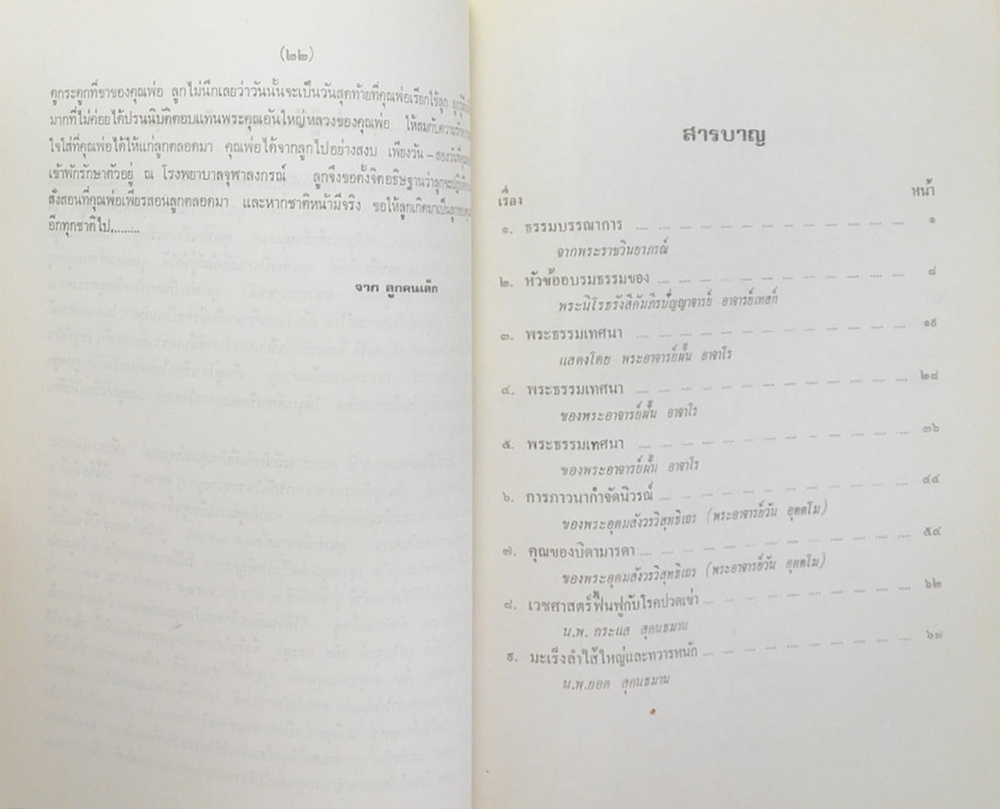 (๒๒)
ดูกระดูกที่ขาของคุณพ่อ ลูกไม่นึกเลยว่าวันนั้นจะเป็นวันสุดท้ายที่คุณพ่อเรียกใช้ลูก
มากที่ไม่ค่อยได้ปรนนิบัติตอบแทนพระคุณอันใหญ่หลวงของคุณพ่อ ให้สมกับความรัก
ใจใส่ที่คุณพ่อได้ให้แก่ลูกตลอดมา คุณพ่อได้จากลูกไปอย่างสงบ เพียงวัน – สองวันที่คุณพ่อ
เข้าพักรักษาตัวอยู่ ณ โรงพยาบาลจุฬาลงกรณ์ ลูกจึงขอตั้งจิตอธิษฐานว่าลูกจะปฏิบัติ
สั่งสอนที่คุณพ่อเพียรสอนลูกตลอดมา และหากชาติหน้ามีจริง ขอให้ลูกเกิดมาเป็นลูกของ
อีกทุกชาติไป........
จาก ลูกคนเล็ก
สารบาญ
เรื่อง หน้า
๑. ธรรมบรรณาการ .... .... .... .... .... .... .... .... .... ๑
จากพระราชวินยาภรณ์
๒. หัวข้ออบรมธรรมของ .... .... .... .... .... .... .... .... ๘
พระนิโรธรังสีคัมภีรปัญญาจารย์ อาจารย์เทสก์
๓. พระธรรมเทศนา .... .... .... .... .... .... .... .... .... ๑๕
แสดงโดย พระอาจารย์ฝั้น อาจาโร
๔. พระธรรมเทศนา .... .... .... .... .... .... .... .... .... ๒๘
ของพระอาจารย์ฝั้น อาจาโร
๕. พระธรรมเทศนา .... .... .... .... .... .... .... .... .... ๓๖
ของพระอาจารย์ฝั้น อาจาโร
๖. การภาวนากำจัดนิวรณ์ .... .... .... .... .... .... .... .... ๔๔
ของพระอุดมสังวรวิสุทธิเถร (พระอาจารย์วัน อุตตโม)
๗. คุณของบิดามารดา .... .... .... .... .... .... .... .... ๕๔
ของพระอุดมสังวรวิสุทธิเถร (พระอาจารย์วัน อุตตโม)
๘. เวชศาสตร์ฟื้นฟูกับโรคปวดเข่า .... .... .... .... .... .... .... ๖๒
น.พ. กระแส สุคนธมาน
๙. มะเร็งลำไส้ใหญ่และทวารหนัก .... .... .... .... .... .... .... ๖๗
น.พ.ยอด สุคนธมาน